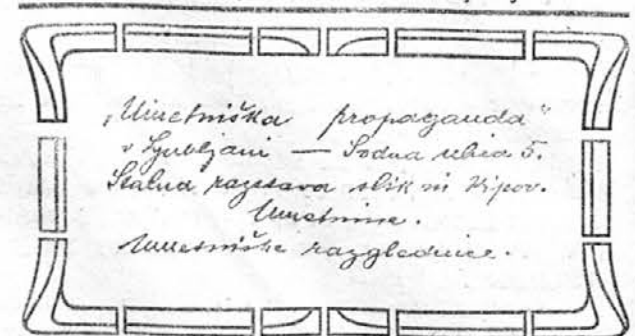 „Umetniška propaganda"
v Ljubljani — Sodna ulica 5.
Stalna razstava slik in kipov.
Umetnine.
Umetniške razglednice.